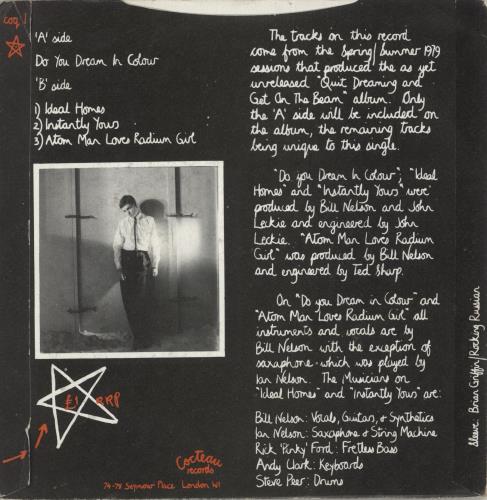 coq 1
'A' side
Do You Dream In Colour
'B' side
1) Ideal Homes
2) Instantly Yours
3) Atom Man Loves Radium Girl
The tracks on this record
come from the Spring/Summer 1979
sessions that produced the as yet
unreleased "Quit Dreaming and
Get On The Beam" album. Only
the 'A' side will be included on
the album, the remaining tracks
being unique to this single.
"Do you Dream In Colour", "Ideal
Homes" and "Instantly Yours" were
produced by Bill Nelson and John
Leckie and engineered by John
Leckie. "Atom Man Loves Radium
Girl" was produced by Bill Nelson
and engineered by Ted Sharp.
On "Do you Dream in Colour" and
"Atom Man Loves Radium Girl" all
instruments and vocals are by
Bill Nelson with the exception of
saxaphone - which was played by
Ian Nelson. The Musicians on
"Ideal Homes" and "Instantly Yours" are:
Bill Nelson: Vocals, Guitars, & Synthetics
Ian Nelson: Saxaphone & String Machine
Rick 'Pinky' Ford: Fretless Bass
Andy Clark: Keyboards
Steve Peer: Drums
£1 RRP
Cocteau
records
74-78 Seymour Place London W1
Sleeve Brian Griffin/Rocking Russian